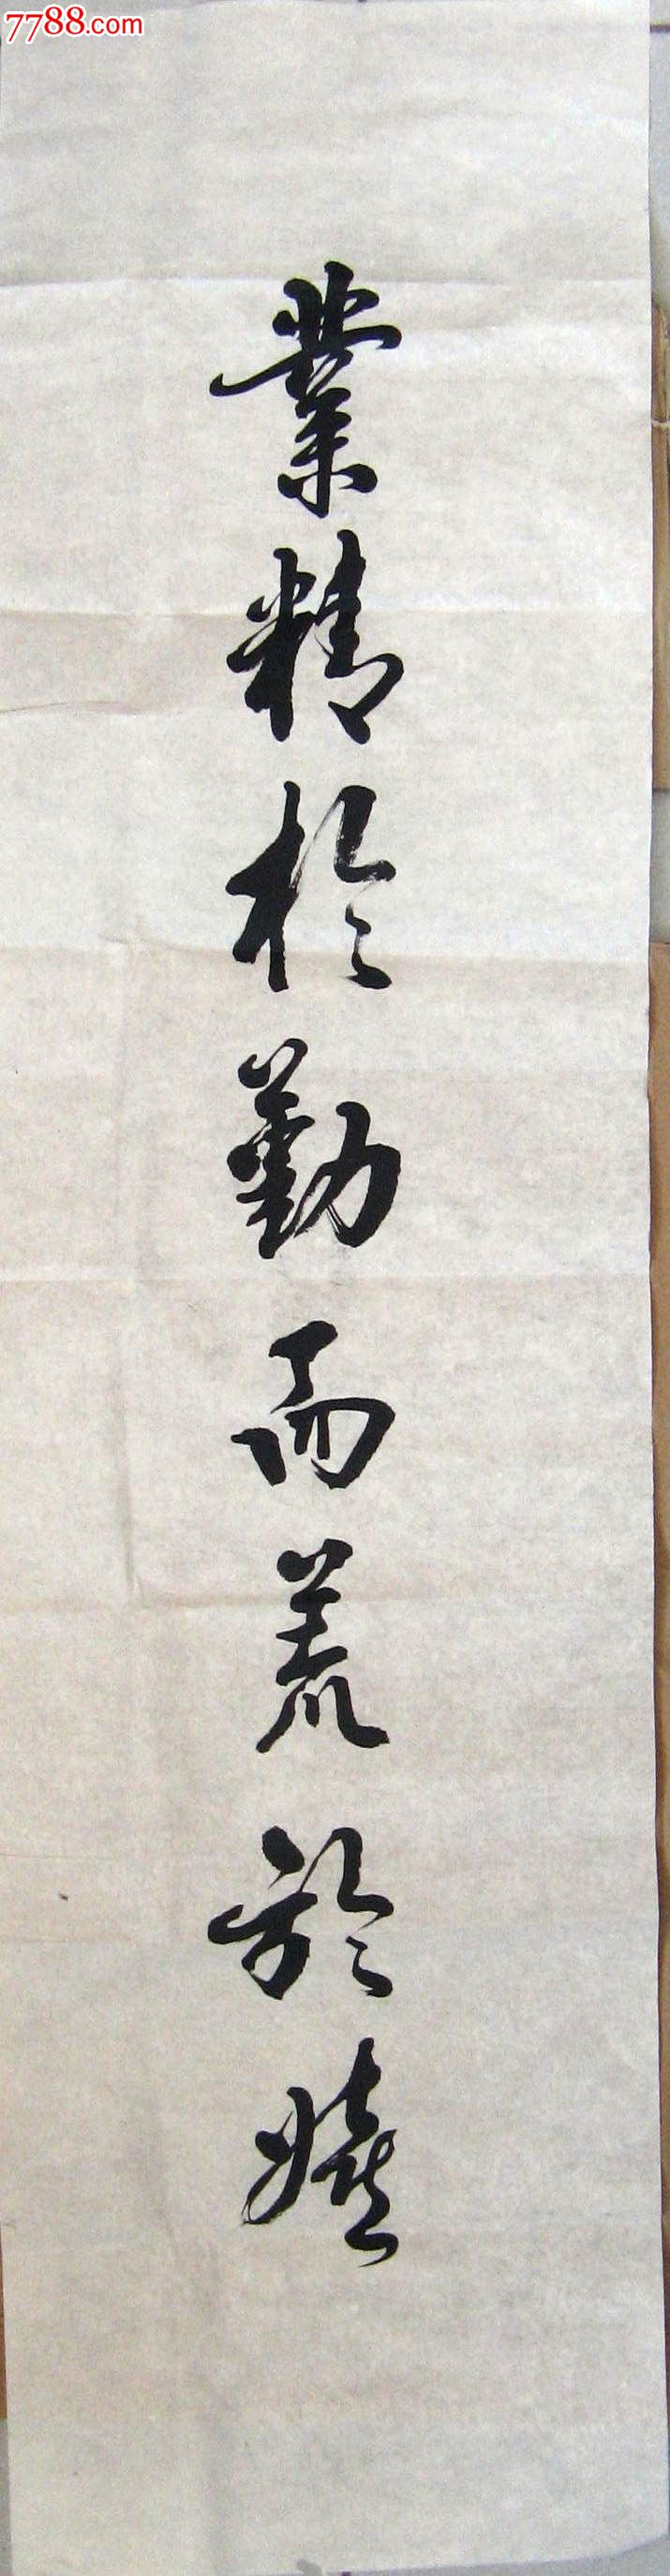 7788.com
業精於勤而荒於嬉